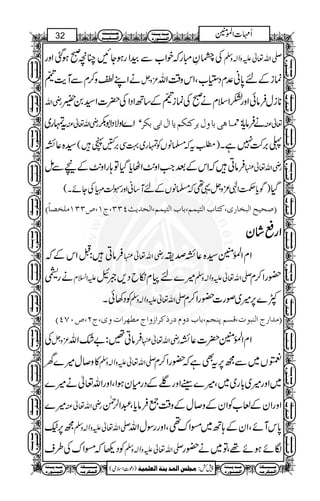 اُمہات المؤمنین
32
صلی اللہ تعالیٰ علیہ والہ وسلم کی چشمان مبارکہ خواب سے بیدار ہو جائیں چنانچہ صبح ہوگئی اور
نماز کے لئے پانی عدم دستیاب، اس وقت اللہ عزوجل نے اپنے لطف و کرم سے آیت تیمم
نازل فرمائی اور لشکر اسلام نے صبح کی نماز تیمم کے ساتھ ادا کی حضرت اسید بن حضیر رضی اللہ
تعالیٰ عنہ نے فرمایا: "ماھی باول برکتکم یا ال ابی بکر" اے اولاد ابو بکر رضی اللہ تعالیٰ عنہ یہ تمہاری
پہلی برکت نہیں ہے۔ (مطلب یہ کہ مسلمانوں کو تمہاری بہت سی برکتیں پہنچی ہیں) سیدہ عائشہ
رضی اللہ تعالیٰ عنہا فرماتی ہیں کہ اس کے بعد جب اونٹ اٹھایا گیا تو ہار اونٹ کے نیچے سے مل
گیا (گویا حکمت الٰہی عزوجل یہی تھی کہ مسلمانوں کے لئے آسانی اور سہولت مہیا کی جائے۔)
(صحیح البخاری، کتاب التیمم، باب التیمم، الحدیث ۳۳٤، ج۱، ص۱۳۳ ملخصاً)
ارفع شان
ام المؤمنین سیدہ عائشہ صدیقہ رضی اللہ تعالیٰ عنہا فرماتی ہیں: قبل اس کے کہ
حضور اکرم صلی اللہ تعالیٰ علیہ والہ وسلم میرے لئے پیام نکاح دیں جبرئیل علیہ السلام نے ریشمی
کپڑے پر میری صورت حضور اکرم صلی اللہ تعالیٰ علیہ والہ وسلم کو دکھائی۔
(مدارج النبوت، قسم پنجم، باب دوم در ذکر ازواج مطہرات وی، ج۲، ص٤۷۰)
ام المؤمنین حضرت عائشہ رضی اللہ تعالیٰ عنہا فرماتی تھیں: بے شک اللہ عزوجل کی
نعمتوں میں سے مجھ پر یہ بھی ہے کہ حضور اکرم صلی اللہ تعالیٰ علیہ والہ وسلم کا وصال میرے گھر
میں اور میری باری میں، میرے سینے اور گلے کے درمیان ہوا، اور اللہ تعالیٰ نے میرے
اور ان کے لعاب کو ان کے وصال کے وقت جمع فرمایا، عبدالرحمٰن رضی اللہ تعالیٰ عنہ میرے
پاس آئے، ان کے ہاتھ میں مسواک تھی، اور رسول اللہ صلی اللہ تعالیٰ علیہ والہ وسلم مجھ پر ٹیک
لگائے ہوئے تھے میں نے حضور کو دیکھا کہ مسواک کی طرف
پیش کش: مجلس المدینۃ العلمیۃ (دعوتِ اسلامی)